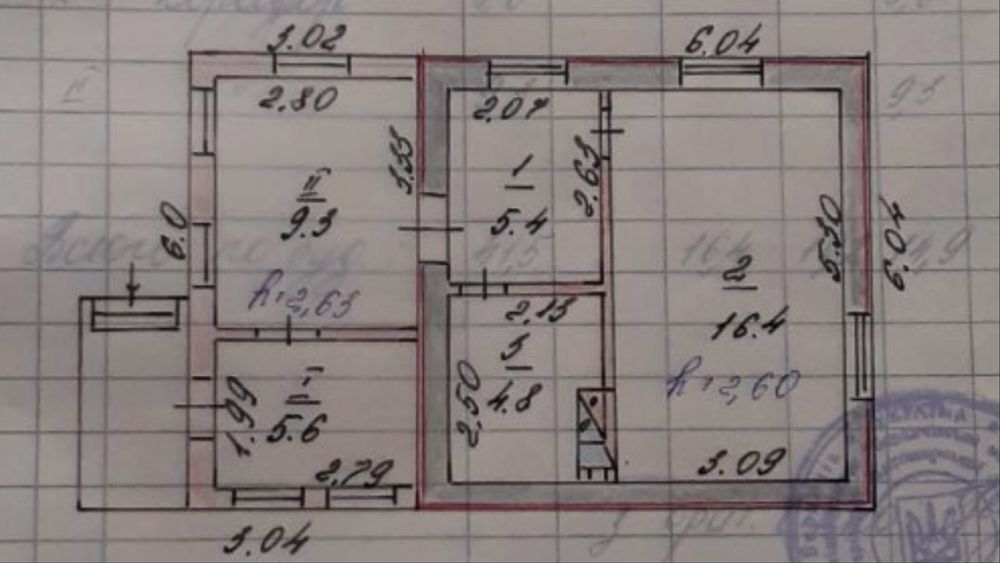 3.02
6.04
2.80
2.07
3.33
2.63
II
9.3
1
5.4
6.0
5.30
6.04
2
16.4
h=2,63
2.13
3
4.8
2.50
h=2,60
I
5.6
1.99
2,79
3.09
3.04